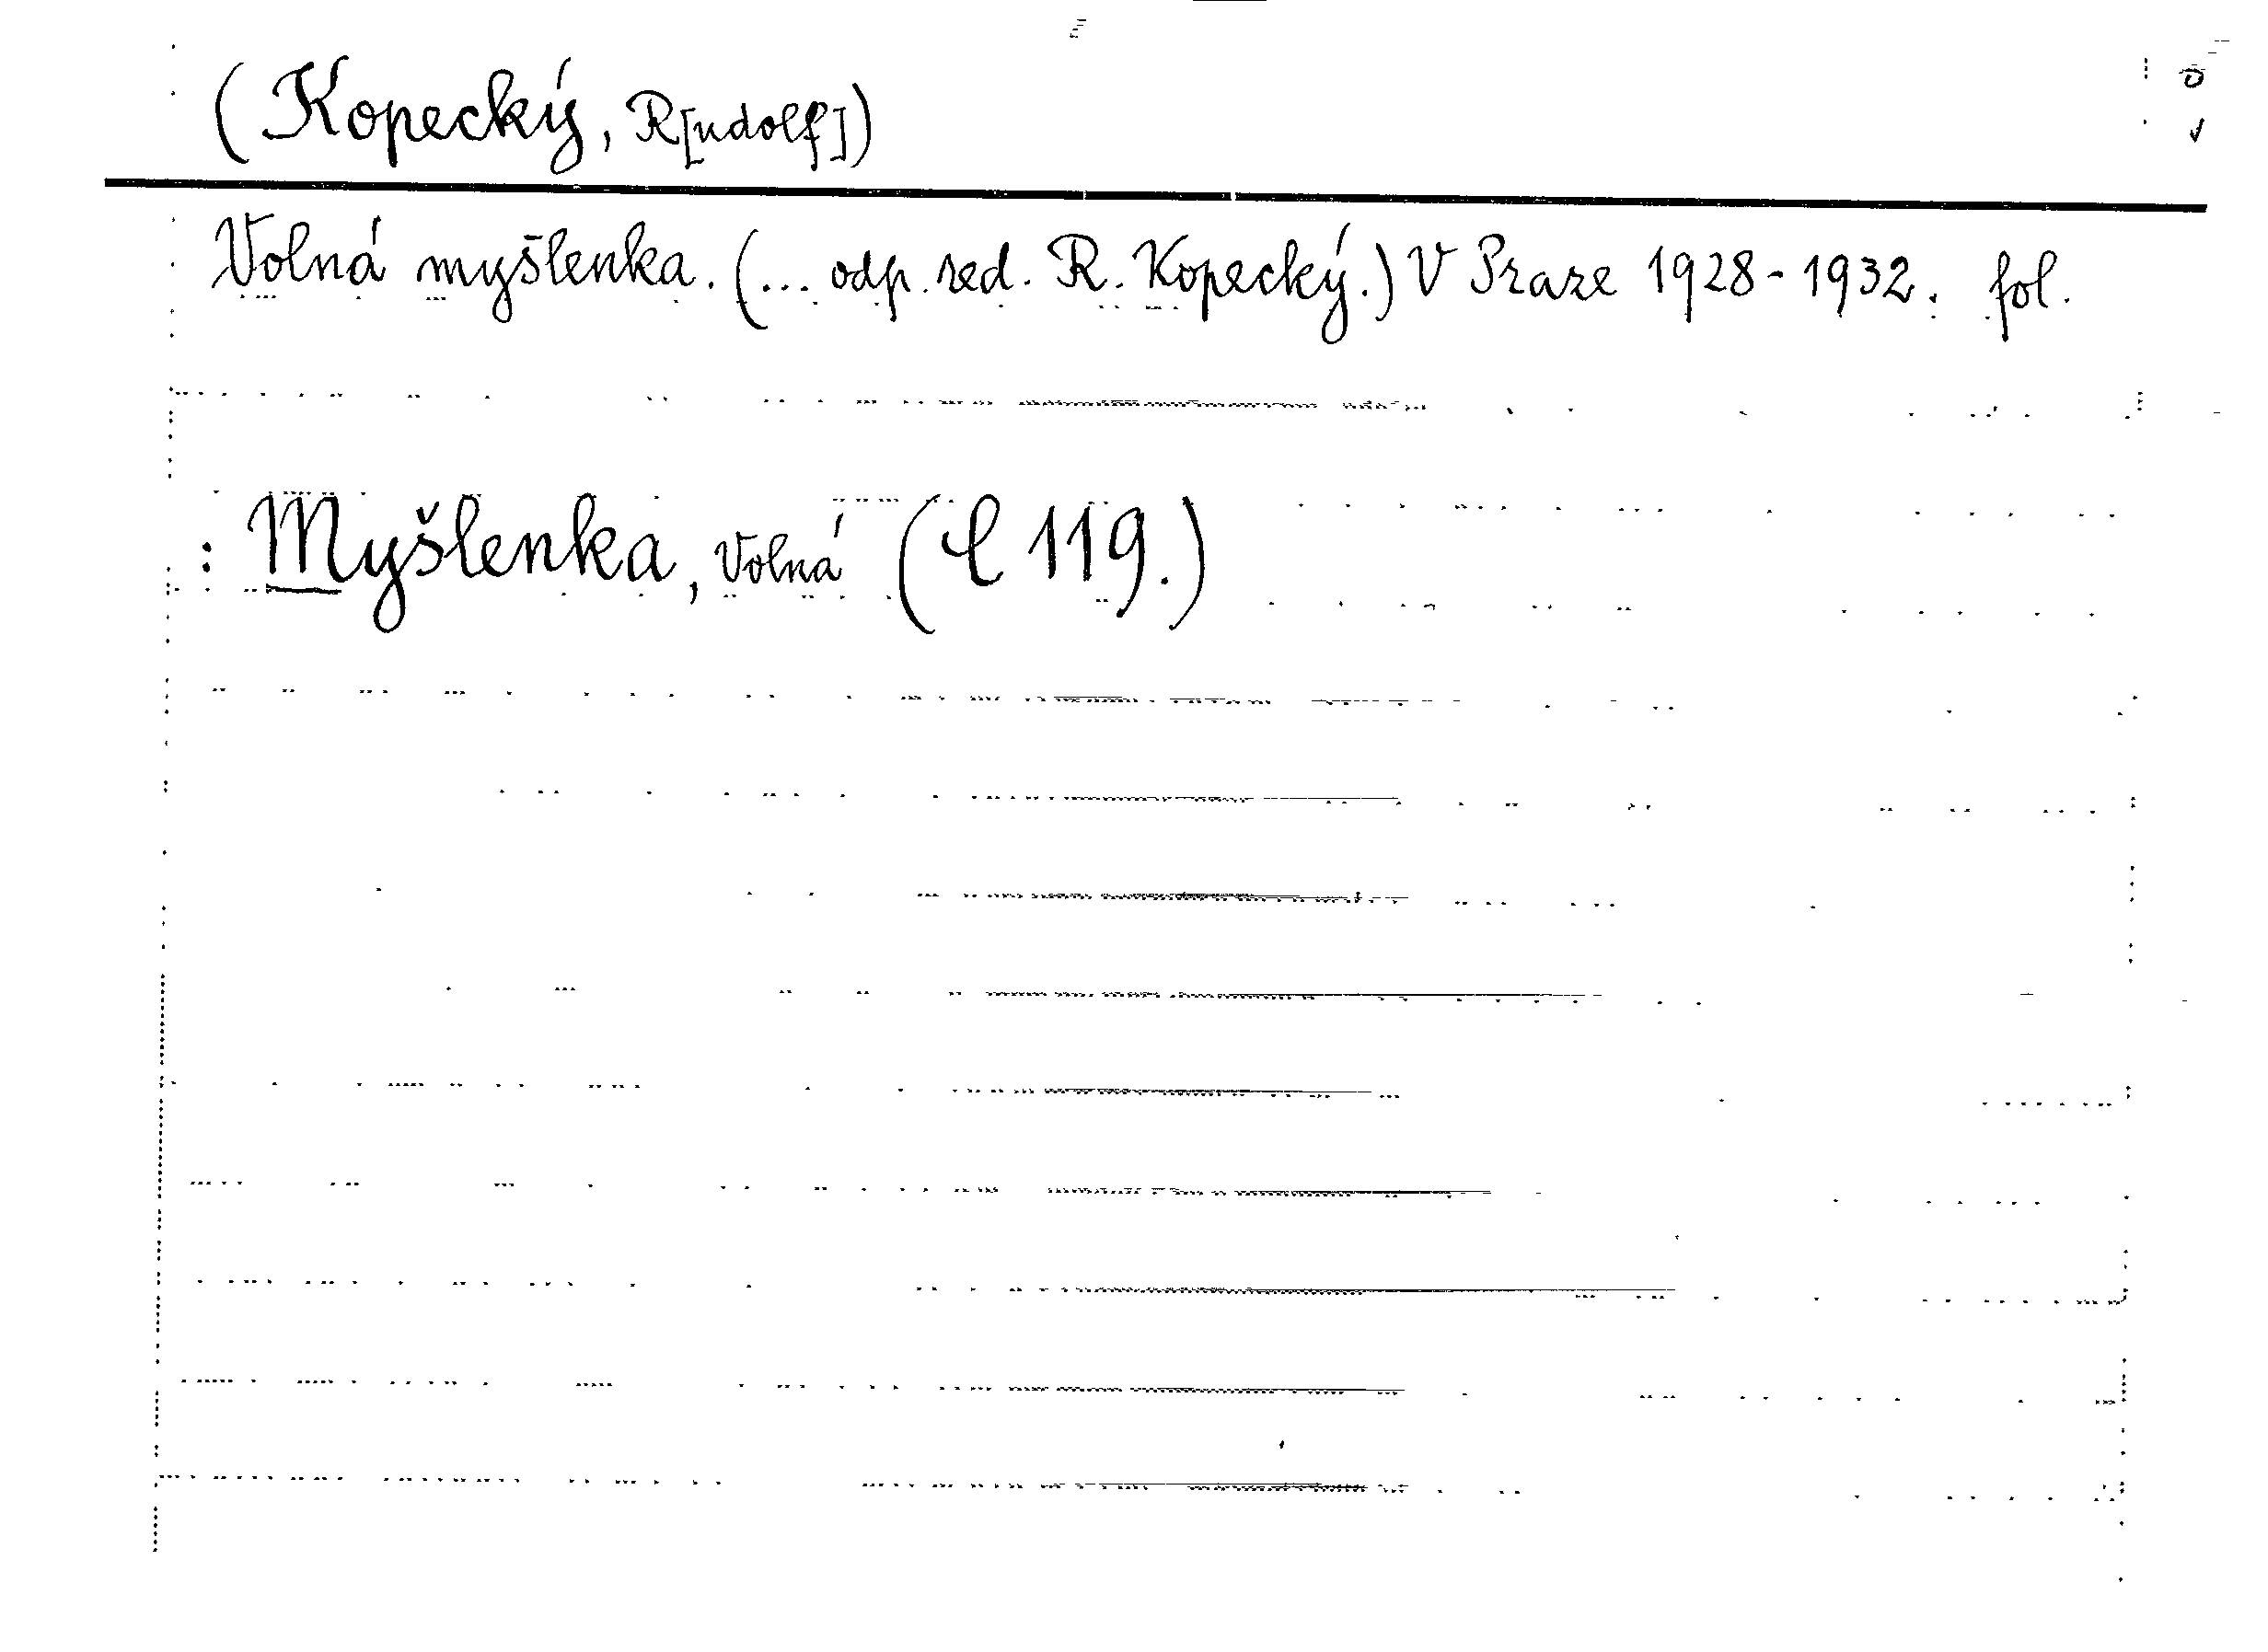 (Kopecký, R[udolf])
Volná myšlenka. (... odp. red. R. Kopecký.) V Praze 1928-1932. fol.
: Myšlenka, Volná (C 119.)